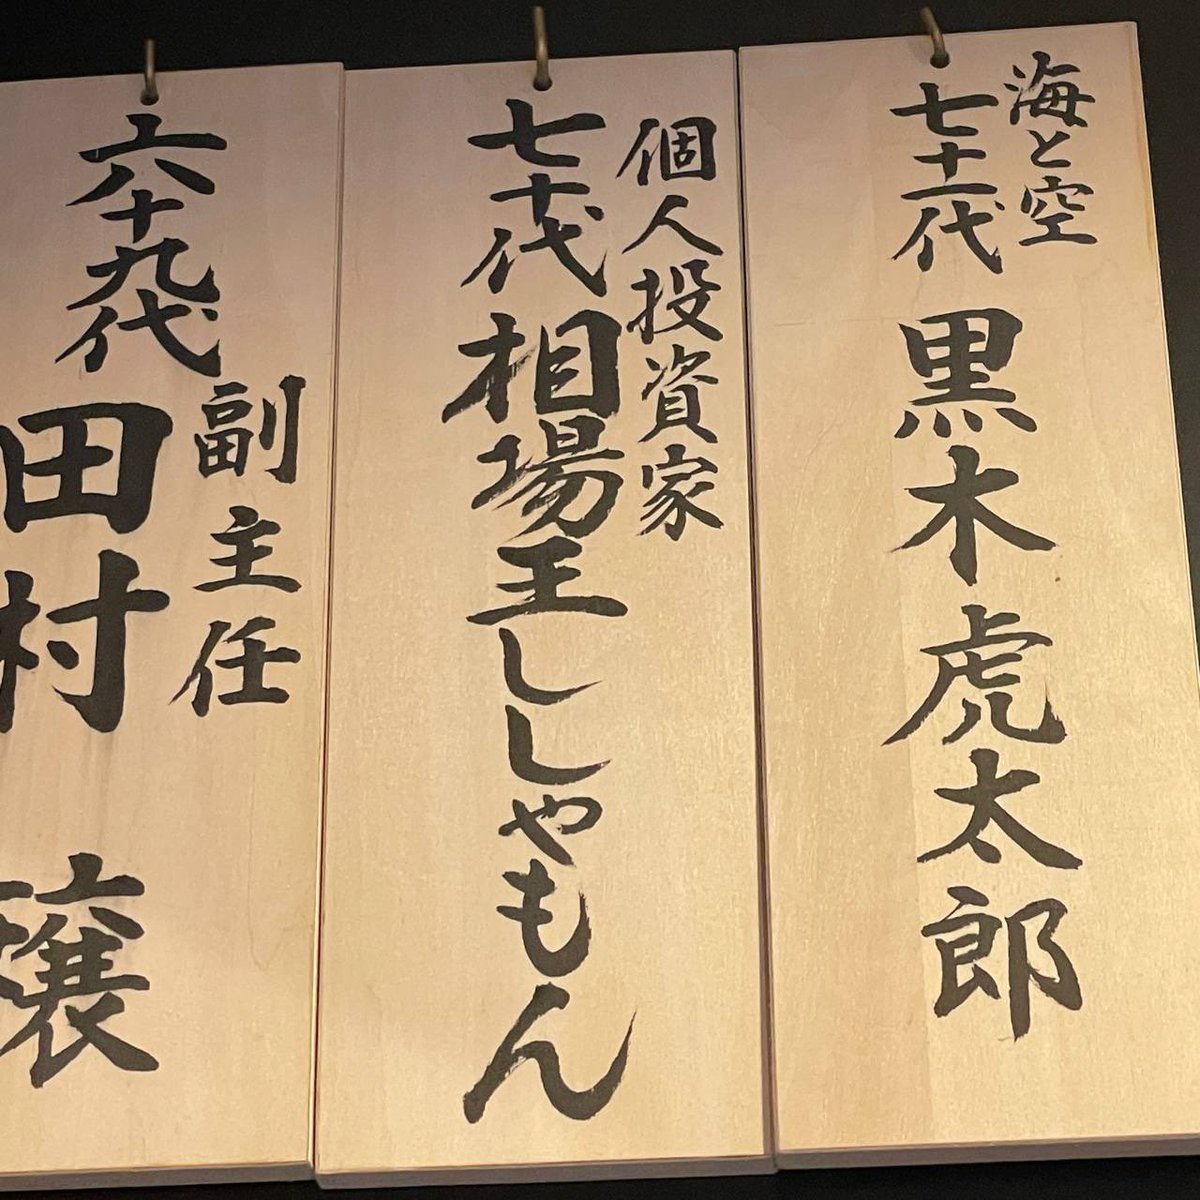 海と空
七十一代 黒木虎太郎
個人投資家
七十代 相場王ししゃもん
副主任
六十九代 田村